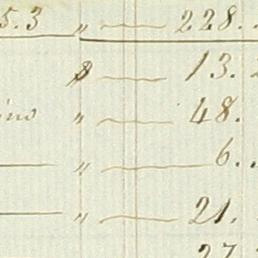 5.3 " 228.
$ 13.
ino " 48.
" 6.
" 21.
27